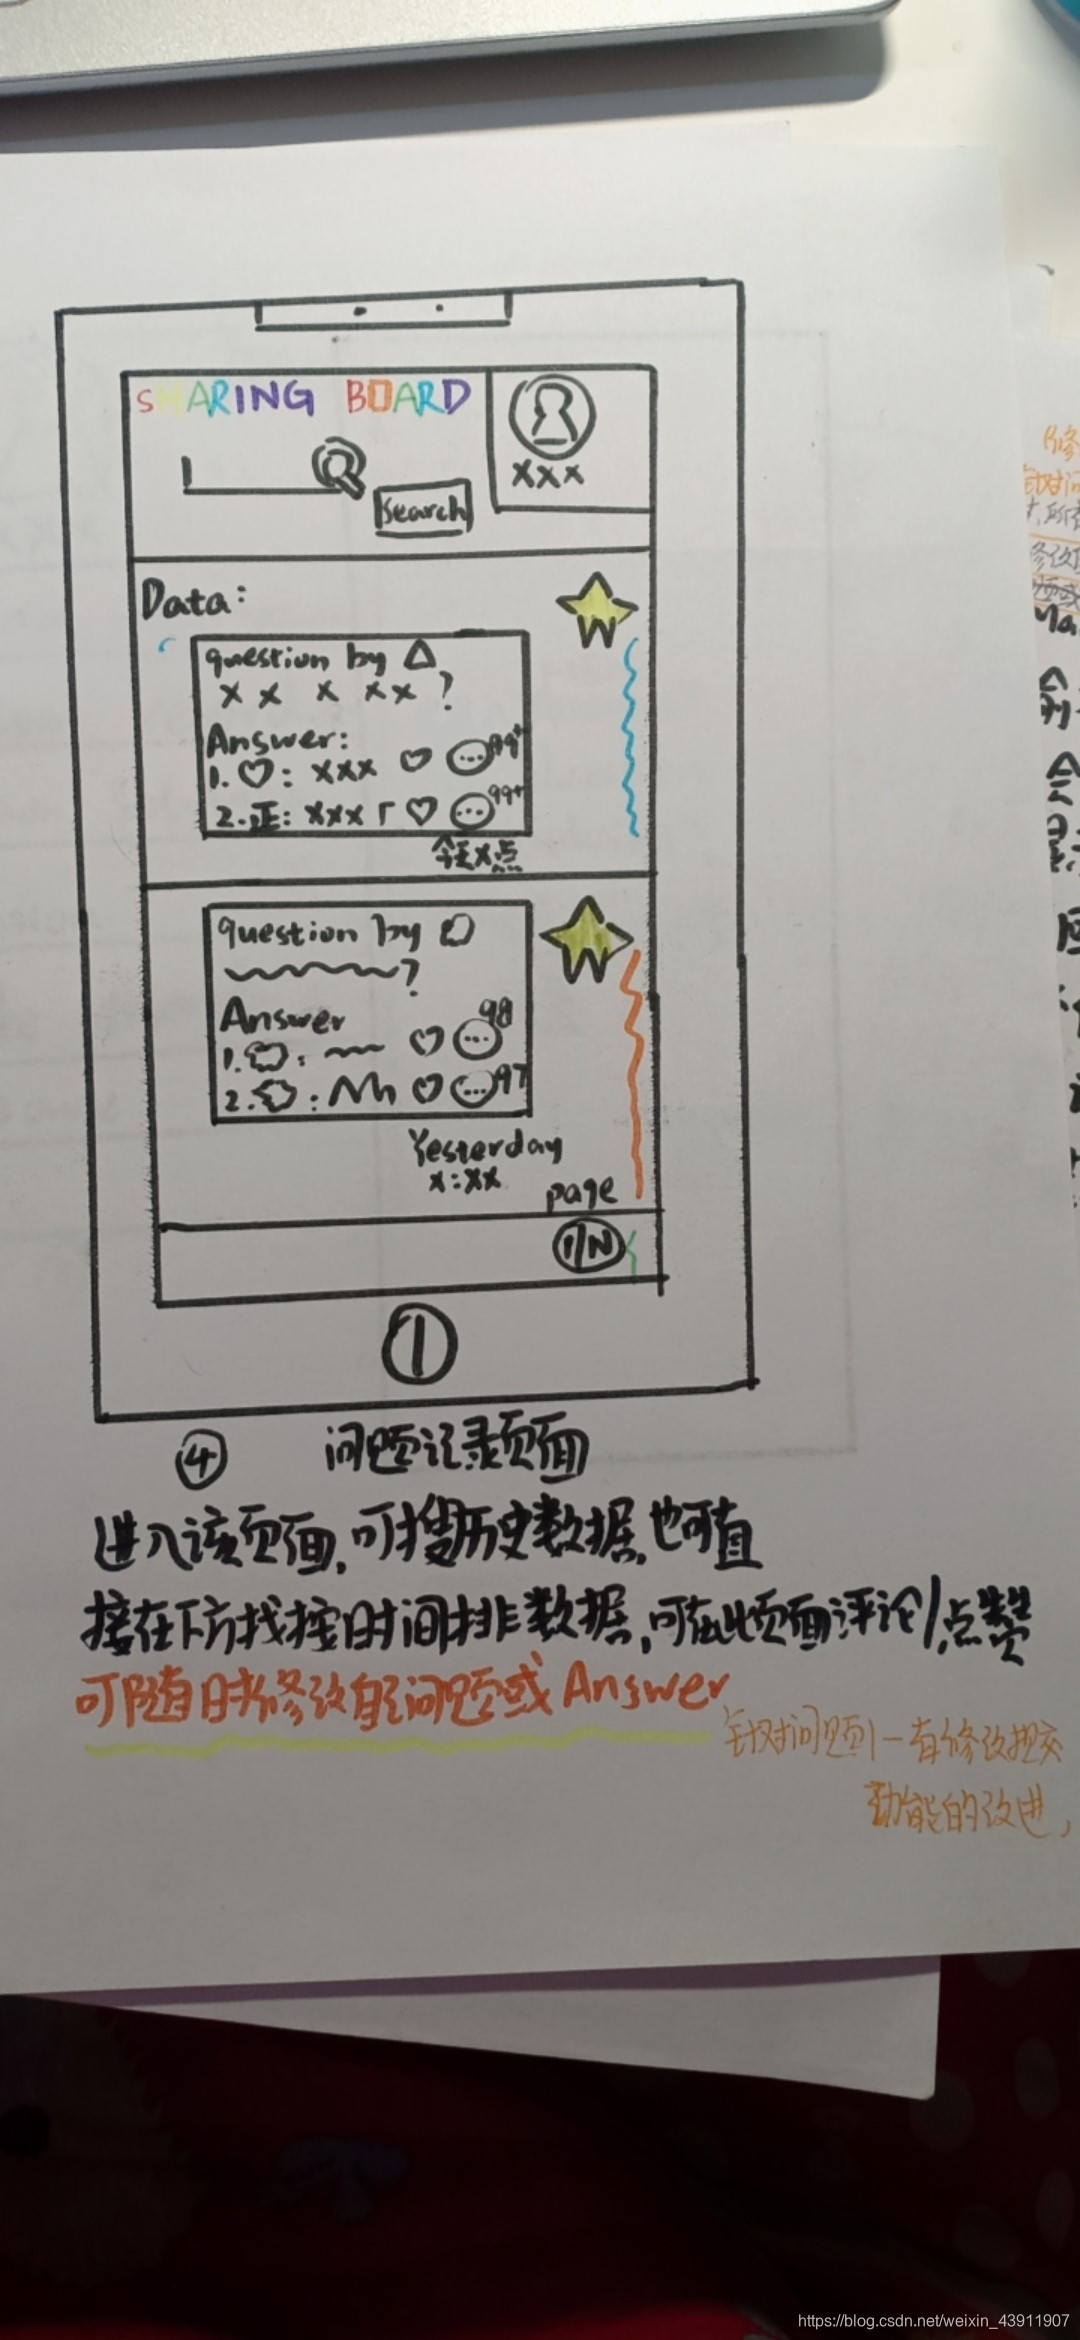 SHARING BOARD
XXX
Search
Data:
question by △
X X X X X ?
Answer:
1. ♡: XXX ♡ 99+
2. 正: XXX ♡ 99+
今天X点
question by
?
Answer
1. : ♡ 98
2. : ♡ 97
Yesterday
X:XX
page
1/N
④ 问题记录页面
进入该页面,可搜历史数据,也可直
接在下方找按时间排数据,可在此页面评论/点赞
可随时修改自己问题或Answer
针对问题1-有修改提交
功能的改进,
https://blog.csdn.net/weixin_43911907